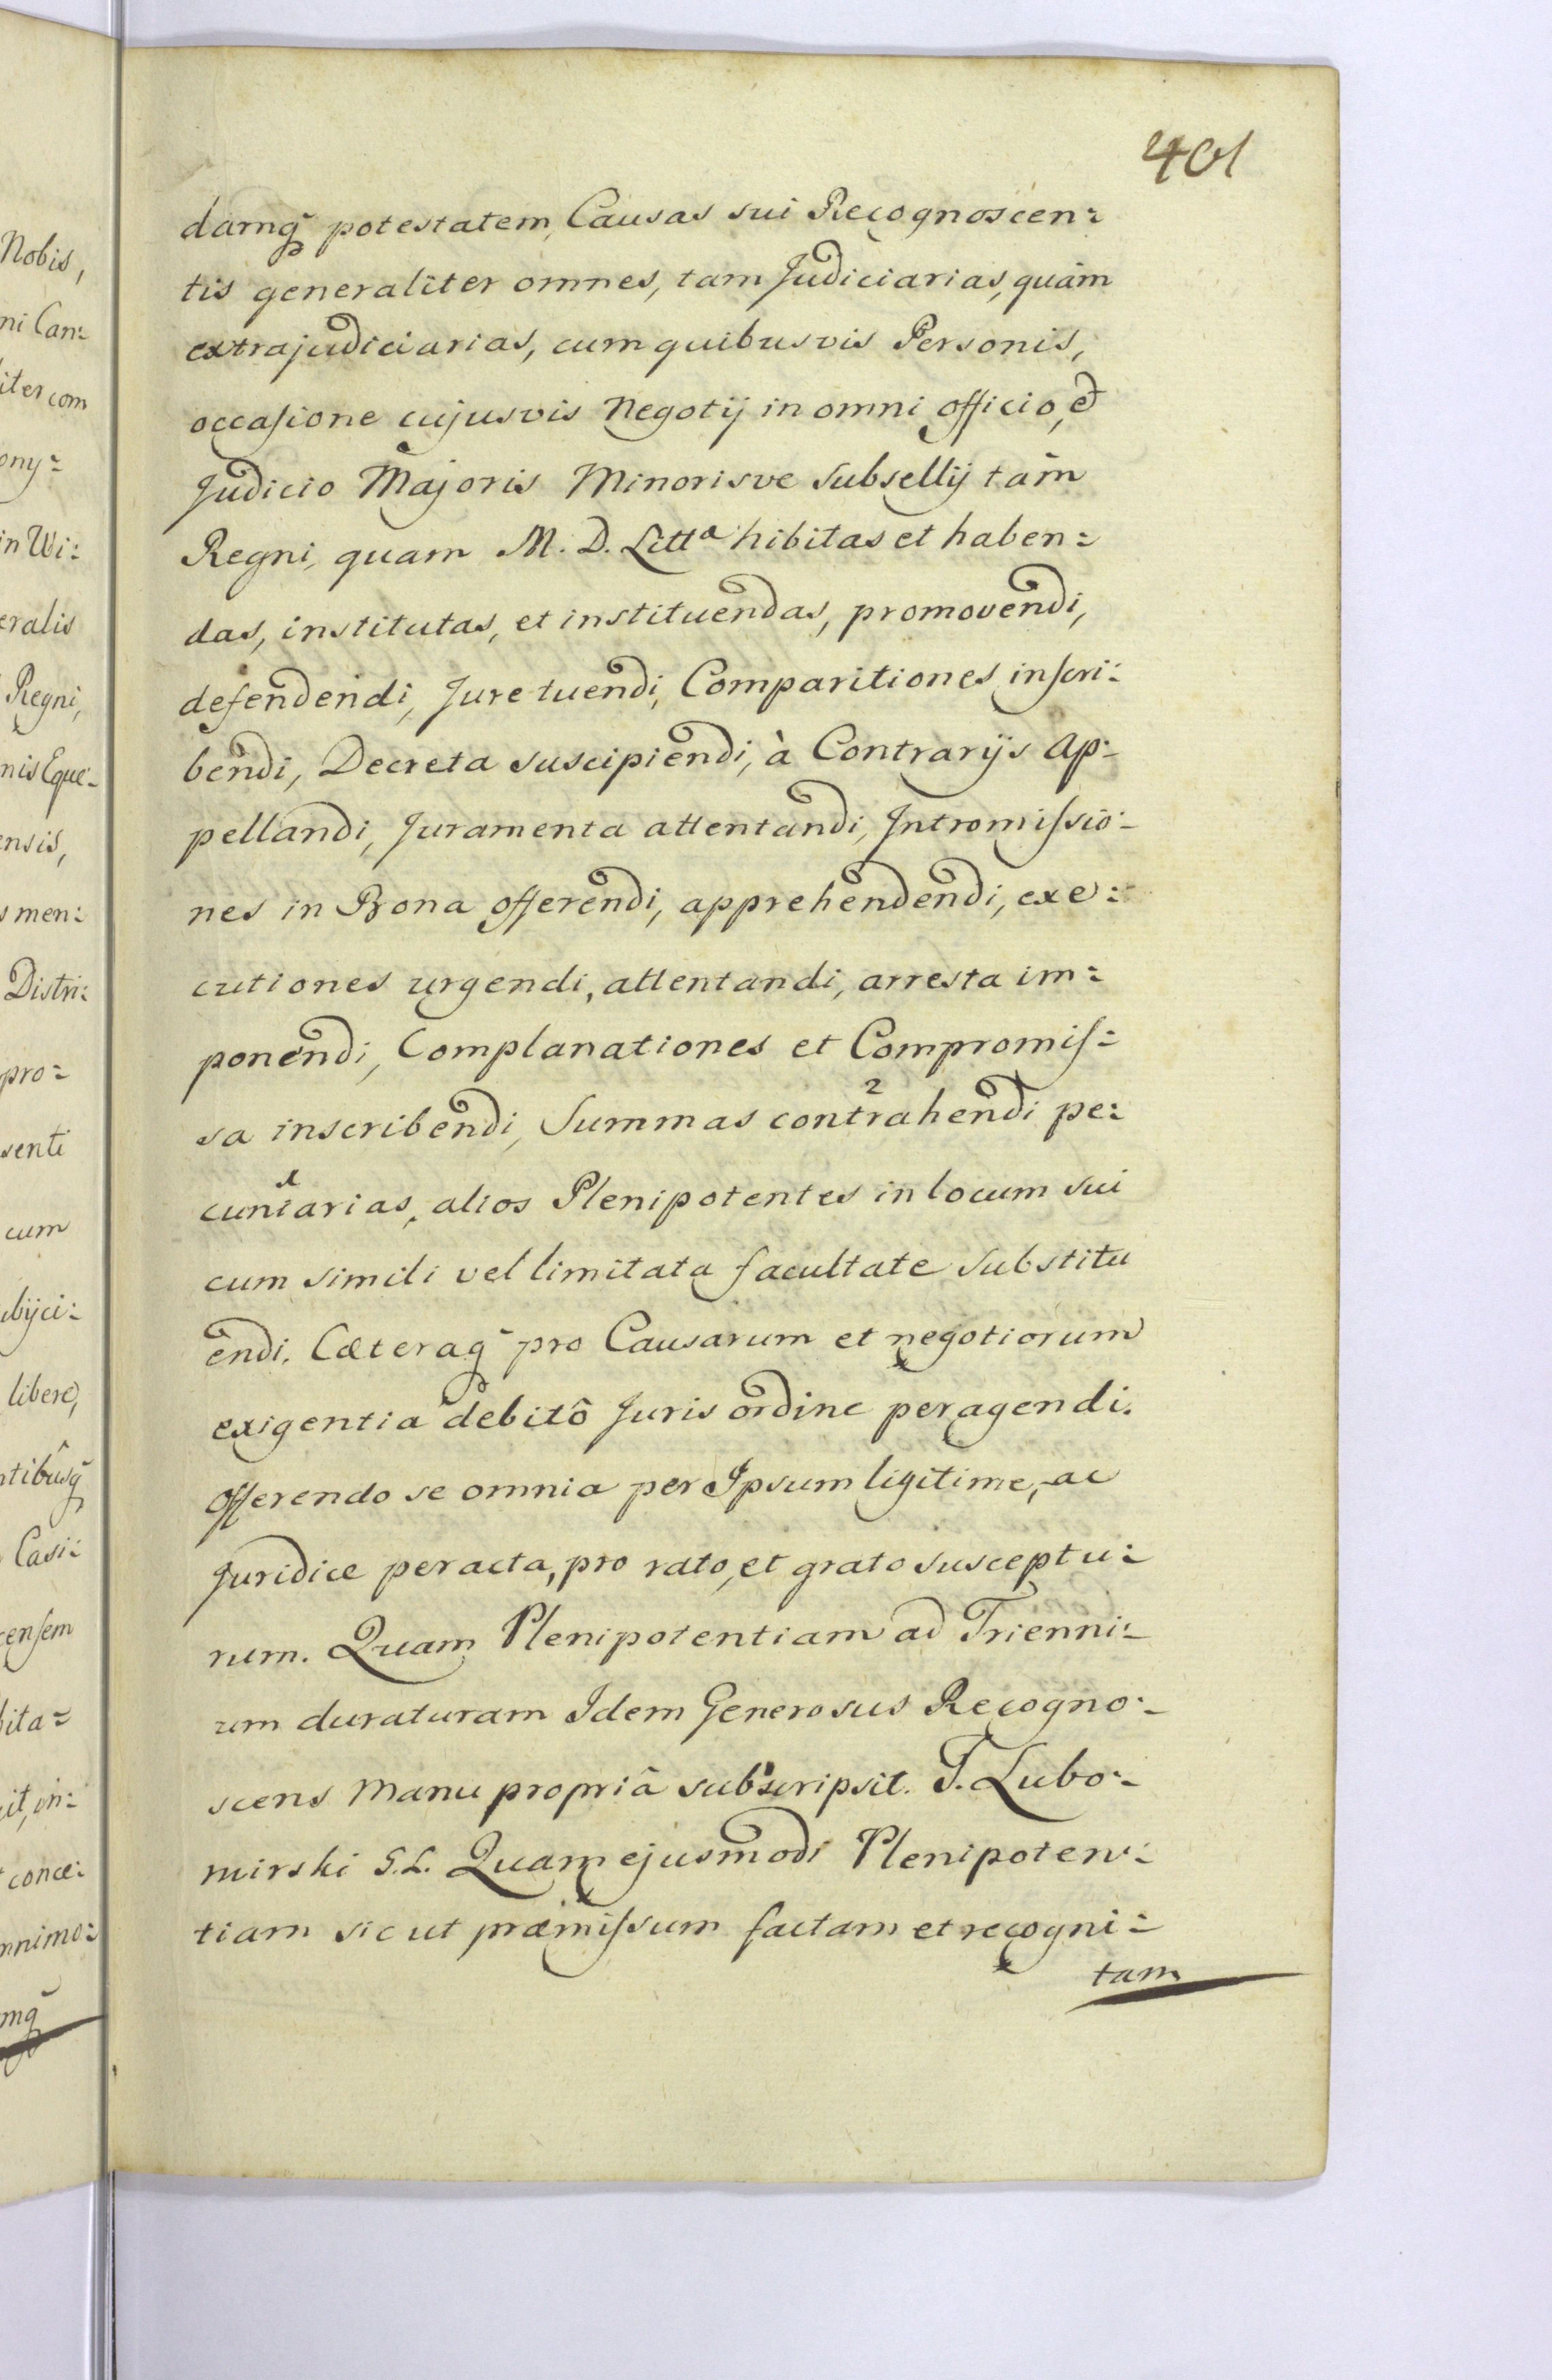 401
damq̃ potestatem, Causas sui Recognoscen:
tis generaliter omnes, tam Judiciarias, quàm
extrajudiciarias, cum quibusvis Personis,
occasione cujusvis Negotij in omni officio, et
Judicio Majoris Minorisve Subsellij tàm
Regni, quam M. D. Littª hibitas et haben:
das, institutas, et instituendas, promovendi,
defendendi, Jure tuendi, Comparitiones inscri:
bendi, Decreta suscipiendi, à Contrarijs Ap:
pellandi, Juramenta attentandi, Intromissio:
nes in Bona offerendi, apprehendendi, exe:
cutiones urgendi, attentandi, arresta im:
ponendi, Complanationes et Compromis:
sa inscribendi, Summas contrahendi 2 pe:
cuniarias 1, alios Plenipotentes in locum sui
cum simili vel limitata facultate Substitu
endi. Cæteraq̃ pro Causarum et negotiorum
exigentia debitô Juris ordine peragendi.
Offerendo se omnia per Ipsum ligitime, ac
Juridice peracta, pro rato, et grato susceptu:
rum. Quam Plenipotentiam ad Trienni:
um duraturam Idem Generosus Recogno:
scens Manu propriâ subscripsit. T. Lubo:
mirski S.L. Quam ejusmodi Plenipoten:
tiam sic ut præmissum factam et recogni:
tam
Nobis,
ni Can:
iter com
ony:
in Wi:
eralis
Regni,
nis Eque:
ensis,
s men:
Distri:
pro:
senti
cum
ubijci:
libere,
ntibusq̃
Casi:
censem
bita:
cit, in:
conce:
mnimo:
mq̃